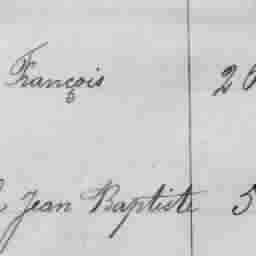 François 26
Jean Baptiste 5